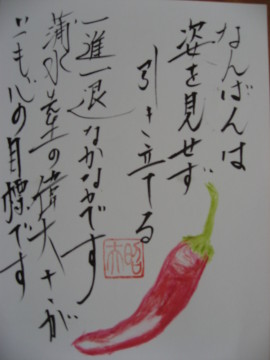 なんばんは
姿を見せず
引き立てる
一進一退なかなかです
薄水墨の偉大さが
ごもじの目標です